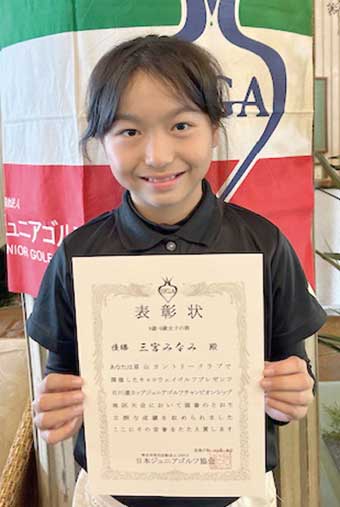 GA
ュニアゴルフ
NIOR GOLF
表彰状
優勝 三宮みなみ 殿
あなたは嵐山カントリークラブで
開催したキャロウェイゴルフプレゼンツ
石川遼カップジュニアゴルフチャンピオンシップ
において頭書のとおり
立派な成績を収められました
ここにその栄誉をたたえ賞します
日本ジュニアゴルフ協会